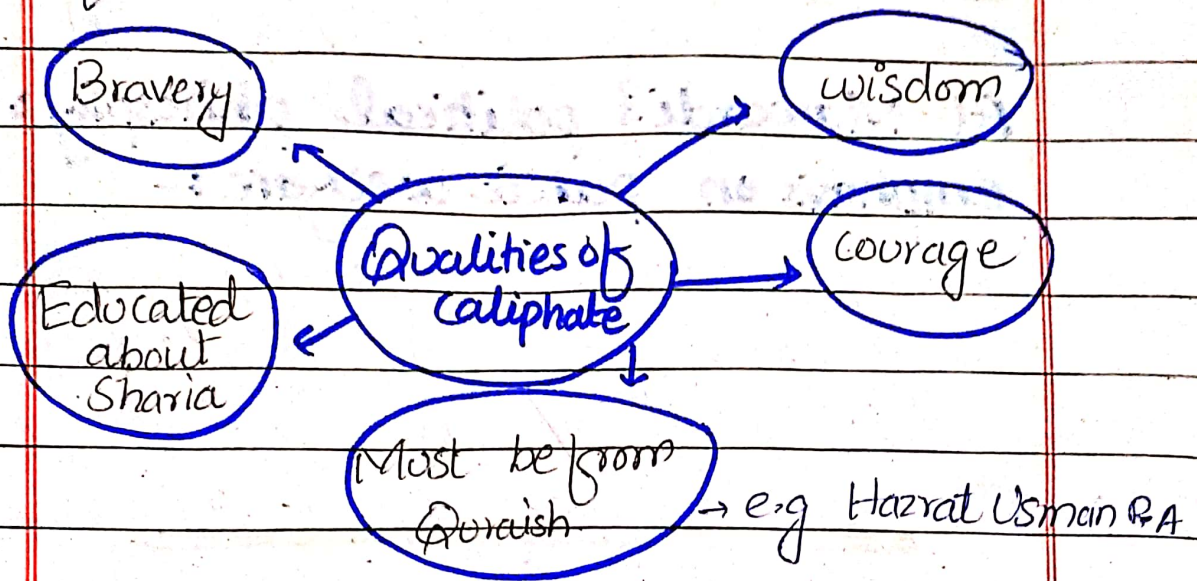 Bravery
wisdom
Qualities of
caliphate
courage
Educated
about
Sharia
Must be from
Quraish
→ e.g Hazrat Usman R.A